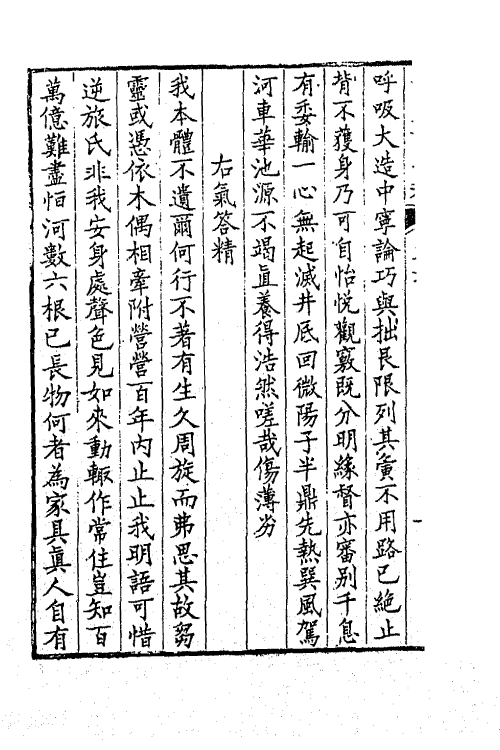 呼吸大造中寧論巧與拙艮限列其夤不用路已絶止
背不獲身乃可自怡悦觀竅既分明緣督亦審别千息
有委輸一心無起滅井底回微陽子半鼎先熱巽風駕
河車華池源不竭真養得浩然嗟哉傷薄劣
右氣答精
我本體不遺爾何行不著有生久周旋而弗思其故芻
靈或憑依木偶相牽附營營百年内止止我明語可惜
逆旅氏非我安身處聲色見如來動輒作常住豈知百
萬億難盡恒河數六根已長物何者為家具真人自有